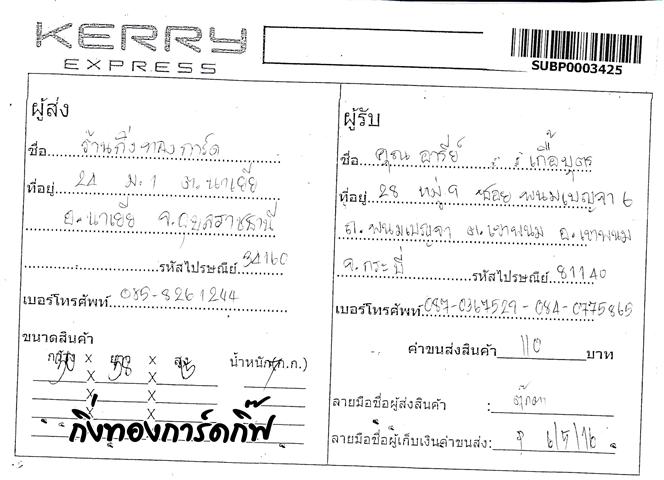 KERRY
EXPRESS
SUBP0003425
ผู้ส่ง
ชื่อ ร้านกิ่งทองการ์ด
ที่อยู่ 24 ม.1 ต.นาเยีย
อ.นาเยีย จ.อุบลราชธานี
รหัสไปรษณีย์ 34160
เบอร์โทรศัพท์ 085-8261244
ขนาดสินค้า
กว้าง x ยาว x สูง น้ำหนัก(ก.ก.)
x x
x x
x x
x x
กิ่งทองการ์ดกิ๊ฟ
ผู้รับ
ชื่อ คุณ อารีย์ เกื้อบุตร
ที่อยู่ 28 หมู่ 9 ซอย พนมเบญจา 6
ถ.พนมเบญจา ต.เขาพนม อ.เขาพนม
จ.กระบี่ รหัสไปรษณีย์ 81140
เบอร์โทรศัพท์ 087-0367529 - 084-0775865
ค่าขนส่งสินค้า 110 บาท
ลายมือชื่อผู้ส่งสินค้า : ตุ๊กตา
ลายมือชื่อผู้เก็บเงินค่าขนส่ง: 6/5/16